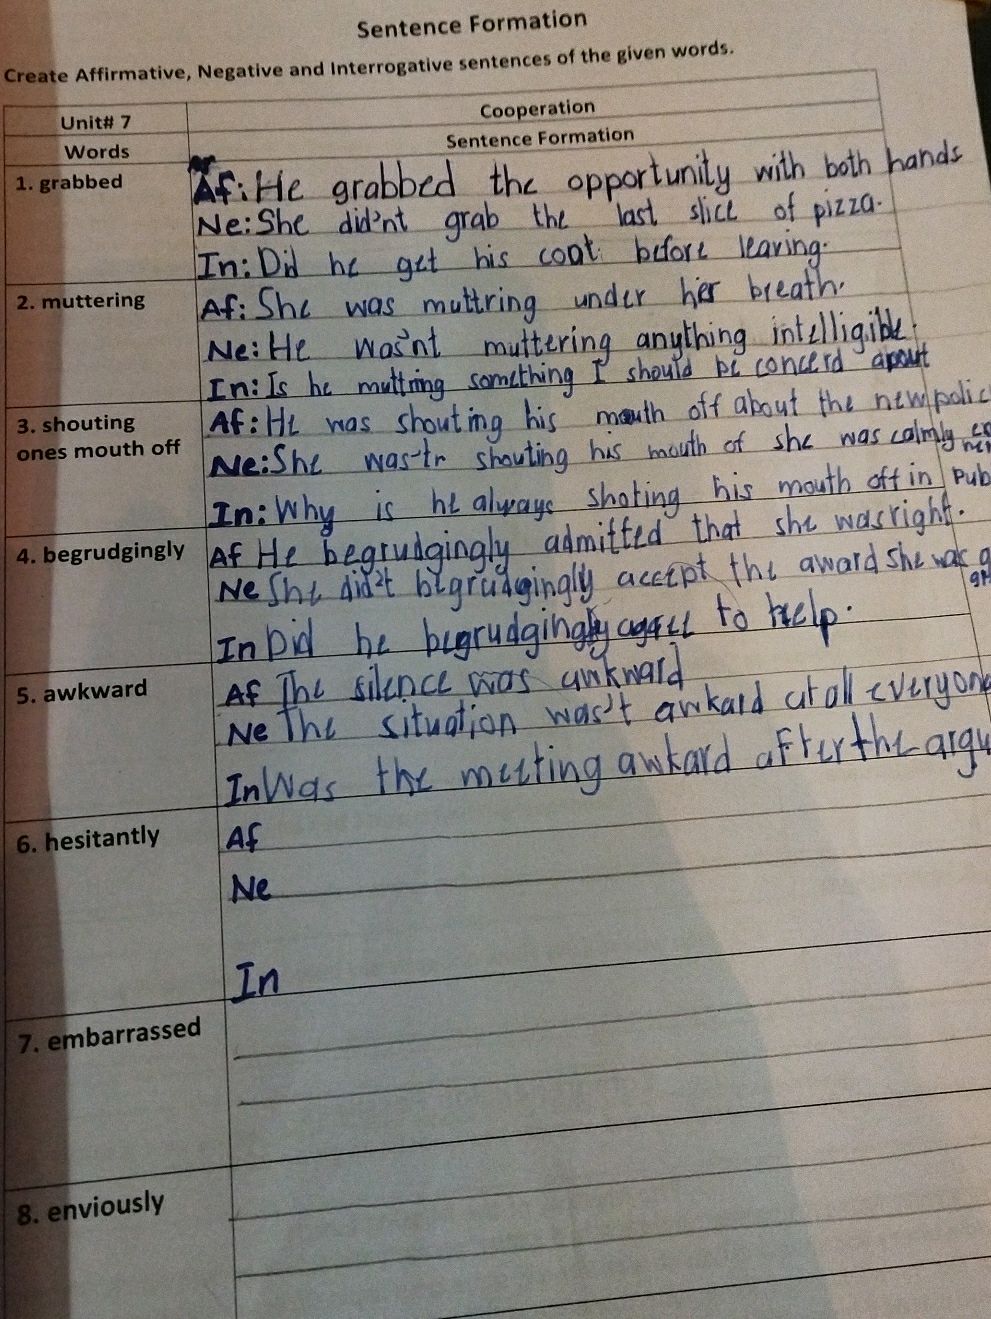 Sentence Formation
Create Affirmative, Negative and Interrogative sentences of the given words.
Unit# 7 Cooperation
Words Sentence Formation
1. grabbed Af: He grabbed the opportunity with both hands
Ne: She did'nt grab the last slice of pizza.
In: Did he get his coat before leaving.
2. muttering Af: She was muttring under her breath.
Ne: He was'nt muttering anything intelligible.
In: Is he muttring something I should be concerd about
3. shouting ones mouth off Af: He was shouting his mouth off about the new polic
Ne: She was shouting his mouth of she was calmly
In: Why is he always shoting his mouth off in Pub
4. begrudgingly Af He begrudgingly admitted that she was right.
Ne She did't begrudgingly accept the award she was g
In Did he begrudgingly to help.
5. awkward Af The silence was awkward
Ne The situation was't awkard at all everyon
In Was the meeting awkard after the argu
6. hesitantly Af
Ne
In
7. embarrassed
8. enviously